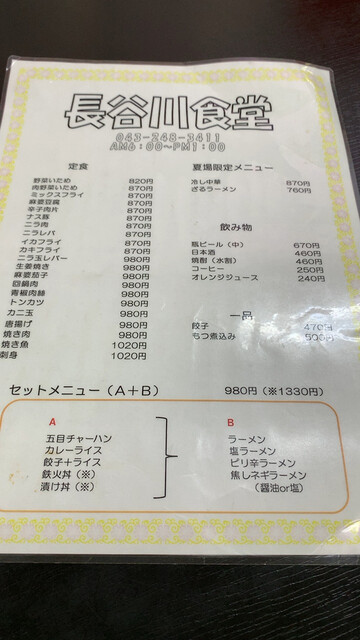 長谷川食堂
043-248-3411
AM6:00～PM1:00
定食
野菜いため 820円
肉野菜いため 870円
ミックスフライ 870円
麻婆豆腐 870円
辛子肉片 870円
ナス豚 870円
ニラ肉 870円
ニラレバ 870円
イカフライ 870円
カキフライ 870円
ニラ玉レバー 980円
生姜焼き 980円
麻婆茄子 980円
回鍋肉 980円
青椒肉絲 980円
トンカツ 980円
カニ玉 980円
唐揚げ 980円
焼き肉 980円
焼き魚 1020円
刺身 1020円
夏場限定メニュー
冷し中華 870円
ざるラーメン 760円
飲み物
瓶ビール（中） 670円
日本酒 460円
焼酎（水割） 460円
コーヒー 250円
オレンジジュース 240円
一品
餃子 470円
もつ煮込み 500円
セットメニュー（A＋B） 980円（※1330円）
A
五目チャーハン
カレーライス
餃子＋ライス
鉄火丼（※）
漬け丼（※）
B
ラーメン
塩ラーメン
ピリ辛ラーメン
焦しネギラーメン
（醤油or塩）